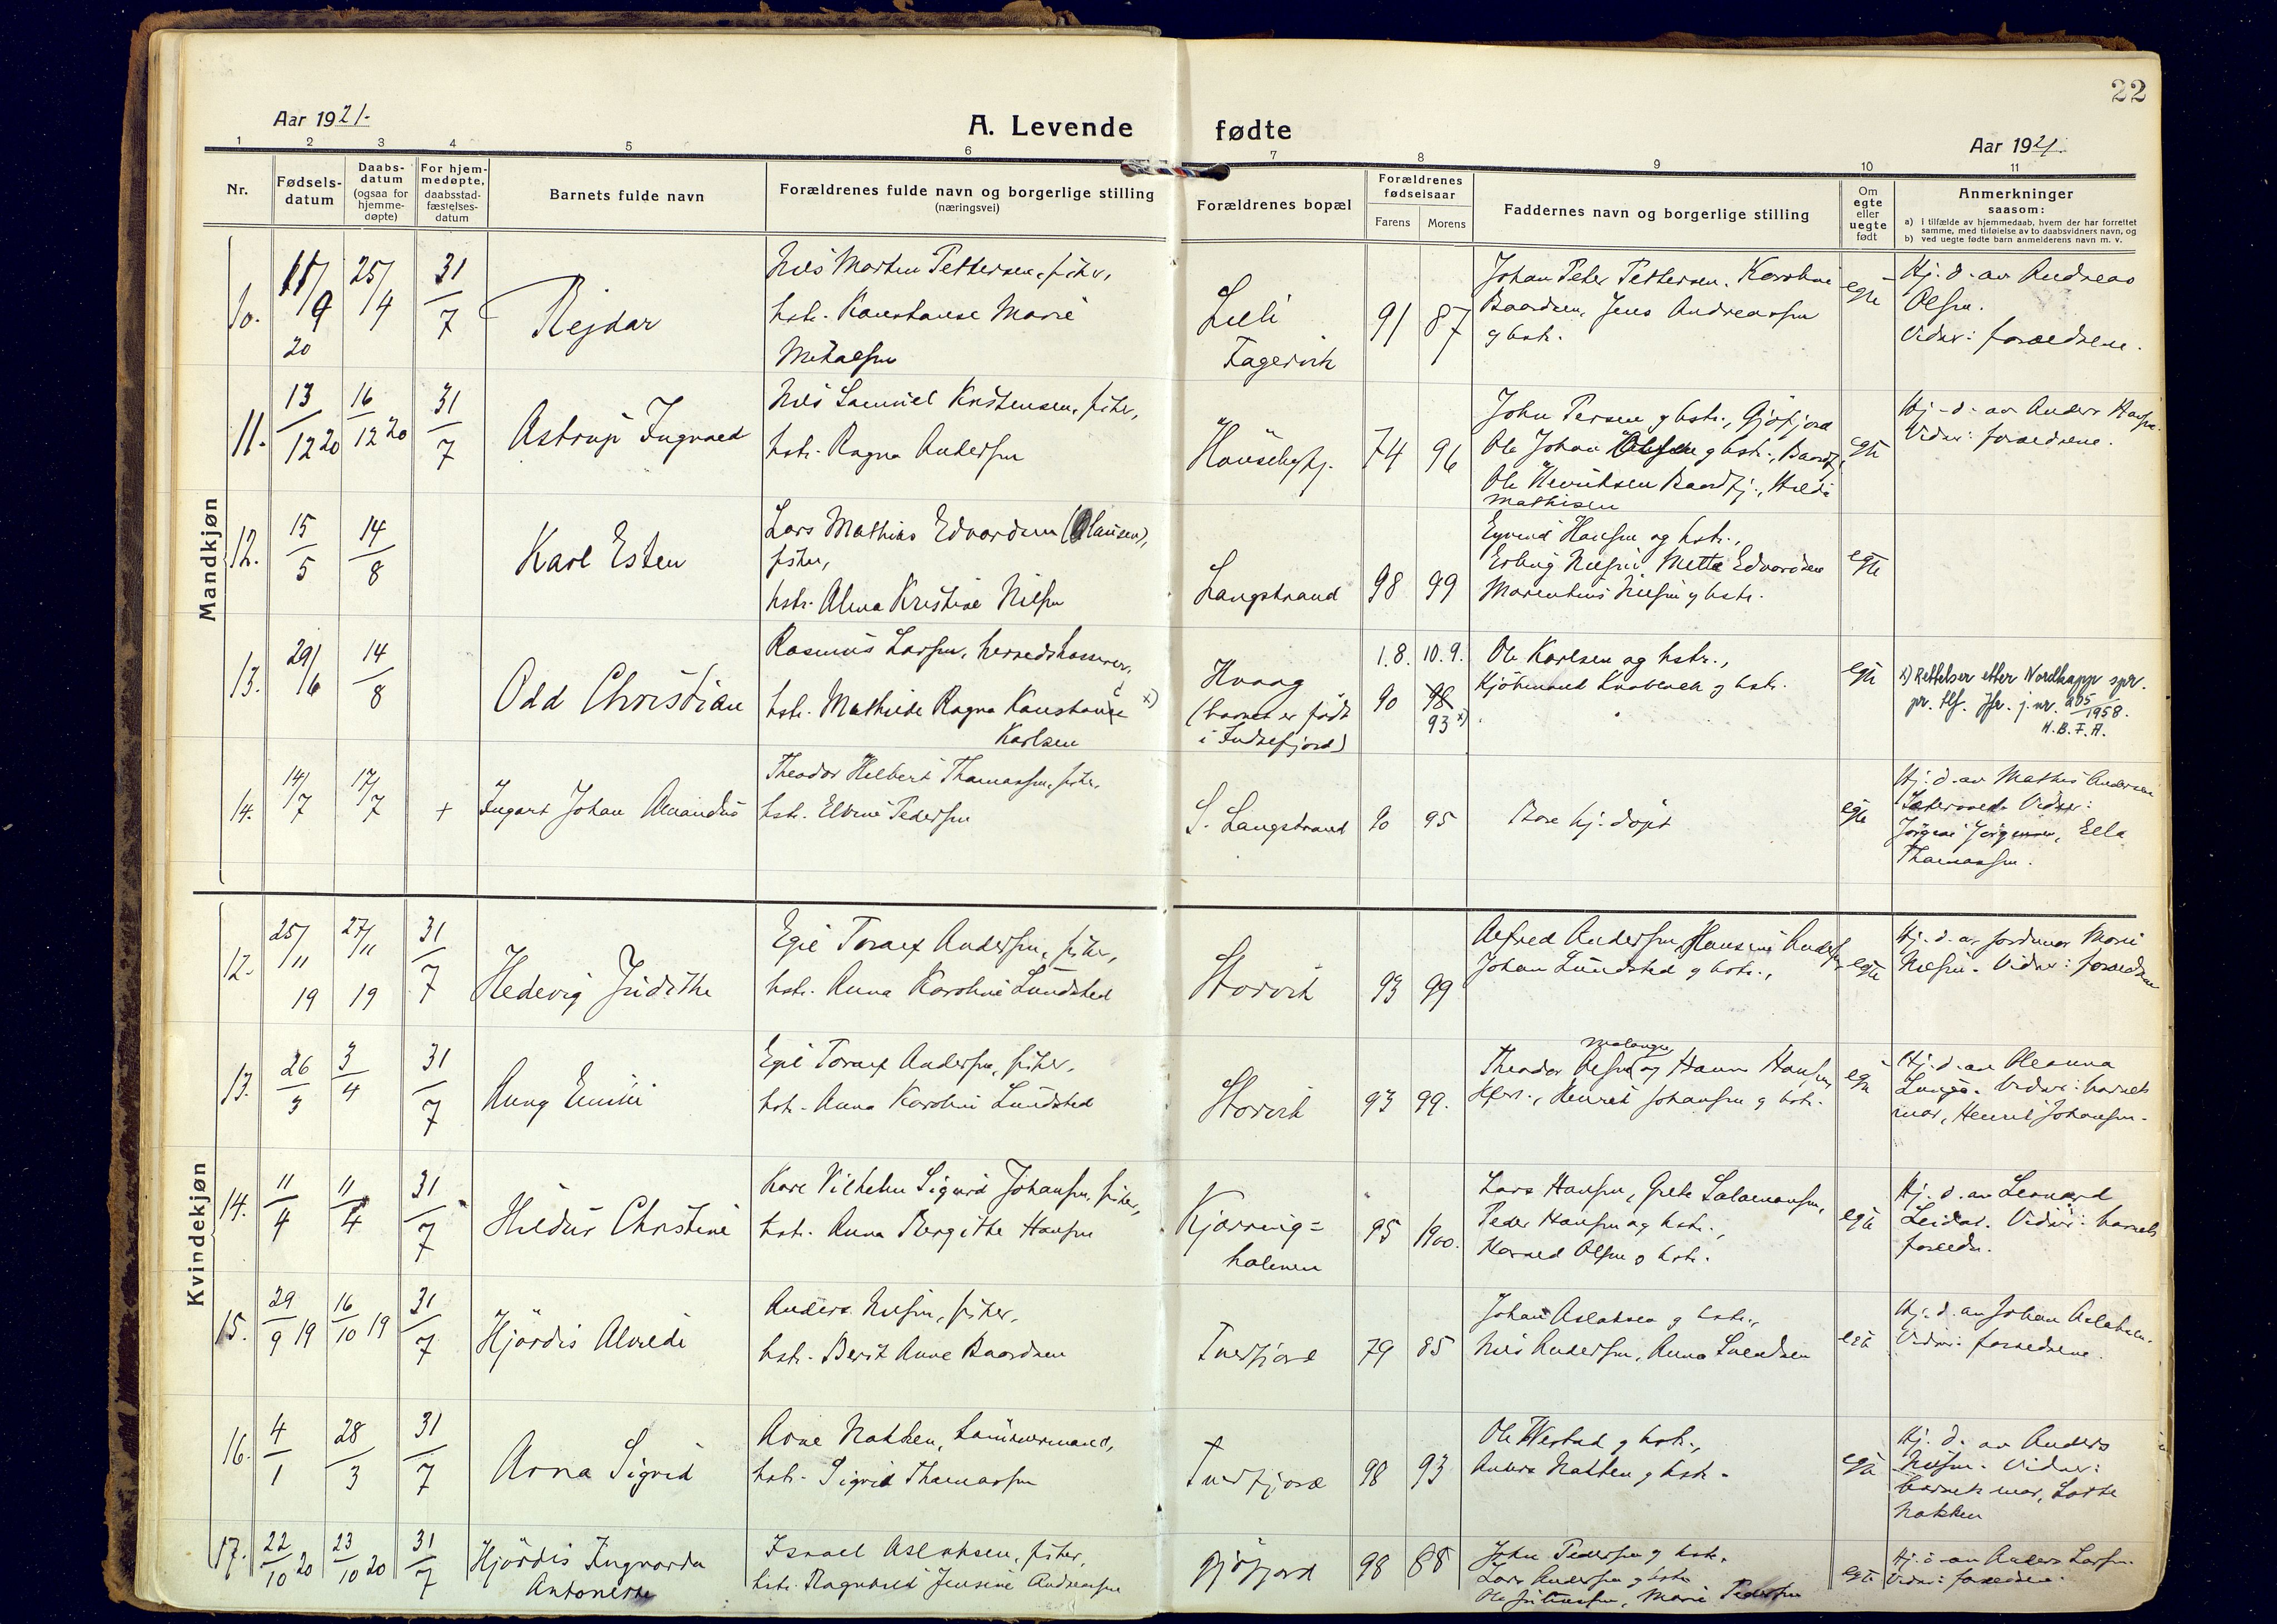 22
Aar 1921.
A. Levende fødte
Aar 1921.
1 2 3 4 5 6 7 8 9 10 11
Nr.
Fødsels-
datum
Daabs-
datum
(ogsaa for
hjemme-
døpte)
For hjem-
medøpte,
daabsstad-
fæstelses-
datum
Barnets fulde navn
Forældrenes fulde navn og borgerlige stilling
(næringsvei)
Forældrenes bopæl
Forældrenes
fødselsaar
Farens Morens
Faddernes navn og borgerlige stilling
Om
egte
eller
uegte
født
Anmerkninger
saasom:
a) i tilfælde av hjemmedaab, hvem der har forrettet
samme, med tilføielse av to daabsvidners navn, og
b) ved uegte fødte barn anmelderens navn m. v.
Mandkjøn
10.
11/9 20
25/4
31/7
Rejdar
Nils Morten Pettersen, fisker,
hstr. Konstanse Marie
Lille
Fagervik
91 87
Johan Peter Pettersen, Karoline
Baardsen, Jens Andreassen
og hstr.
egte
Hj. d. av Andreas
Olsen.
Vidner: forældrene.
11.
13/12 20
16/12 20
31/7
Astrup Ingvald
Nils Samuel Kristensen, fisker,
hstr. Ragna Andersen
74 96
John Persen og hstr., Gjøfjord
Ole Johan Olsen og hstr., Baardfj.
Ole Henriksen Baardfj., Hilda
Mathisen
egte
Hj. d. av Anders Hansen.
Vidner: forældrene.
12.
15/5
14/8
Karl Esten
Lars Mathias Edvardsen (Clausen),
fisker,
hstr. Alma Kristine Nilsen
Langstrand
98 99
Eyvind Hansen og hstr.,
Erling Nilsen, Mette Edvardsen
Marentius Nilsen og hstr.
egte
13.
29/6
14/8
Odd Christian
Rasmus Larsen, herredskasserer,
hstr. Mathilde Ragna Konstance x)
Karlsen
Hvaag
(barnet er født
i Indrefjord)
1.8. 10.9.
90 98
93 x)
Ole Karlsen og hstr.,
egte
x) Rettelser etter Nordkapp spr.
pr. tlf. Jfr. j.nr. 205/1958.
H.B.F.A.
14.
14/7
17/7
+
Ingart Johan Amandus
Theodor Hilbert Thomassen, fisker,
hstr. Elvine Pedersen
S. Langstrand
90 95
Bare hj. døpt
egte
Hj. d. av Mathis Andersen
Vidner:
Jørgine Jørgensen, Ella
Thomassen.
Kvindekjøn
12.
25/11 19
27/11 19
31/7
Hedevig Judithe
Egil Toralf Andersen, fisker,
hstr. Anna Karoline Lundsted
Storvik
93 99
Alfred Andersen, Hansine Andersen
Johan Lundsted og hstr.,
egte
Hj. d. av jordmor Marie
Nilsen. Vidner: forældrene
13.
26/3
3/4
31/7
Aung Emilie
Egil Toralf Andersen, fisker,
hstr. Anna Karoline Lundsted
Storvik
93 99.
Malangen
Theodor Olsen og Hanna Hansen
Hfest., Henrik Johansen og hstr.
egte
Hj. d. av Oleanna
Lunga. Vidner: barnets
mor, Henrik Johansen.
14.
11/4
11/4
31/7
Hildur Christine
Karl Vilhelm Sigurd Johansen, fisker,
hstr. Anna Bergithe Hansen
Kjærring=
holmen
95 1900.
Lars Hansen, Grete Salamonsen,
Peder Hansen og hstr.,
Harald Olsen og hstr.
egte
Hj. d. av Leonard
Leidal. Vidner: barnets
forældr.
15.
29/9 19
16/10 19
31/7
Hjördis Alvilde
Anders Nilsen, fisker,
hstr. Berit Anne Baardsen
Tuefjord
79 85
Johan Aslaksen og hstr.,
Nils Andersen, Anna Svendsen
egte
Hj. d. av Johan Aslaksen.
Vidner: forældrene.
16.
4/1
28/3
31/7
Arna Sigrid
Arne Nakken, tømmermand,
hstr. Sigrid Thomassen
Tuefjord
98 93
Ole Westad og hstr.,
Anders Nakken og hstr.
egte
Hj. d. av Anders
Nilsen. Vidner:
barnets mor, Lotte
Nakken
17.
22/10 20
23/10 20
31/7
Hjördis Ingvarda
Antonette
Israel Aslaksen, fisker,
hstr. Ragnhild Jensine Andreassen
Gjøfjord
98 88
John Pedersen og hstr.
Lars Andersen og hstr.
Marie Pedersen
egte
Hj. d. av Anders Larsen.
Vidner: forældrene.